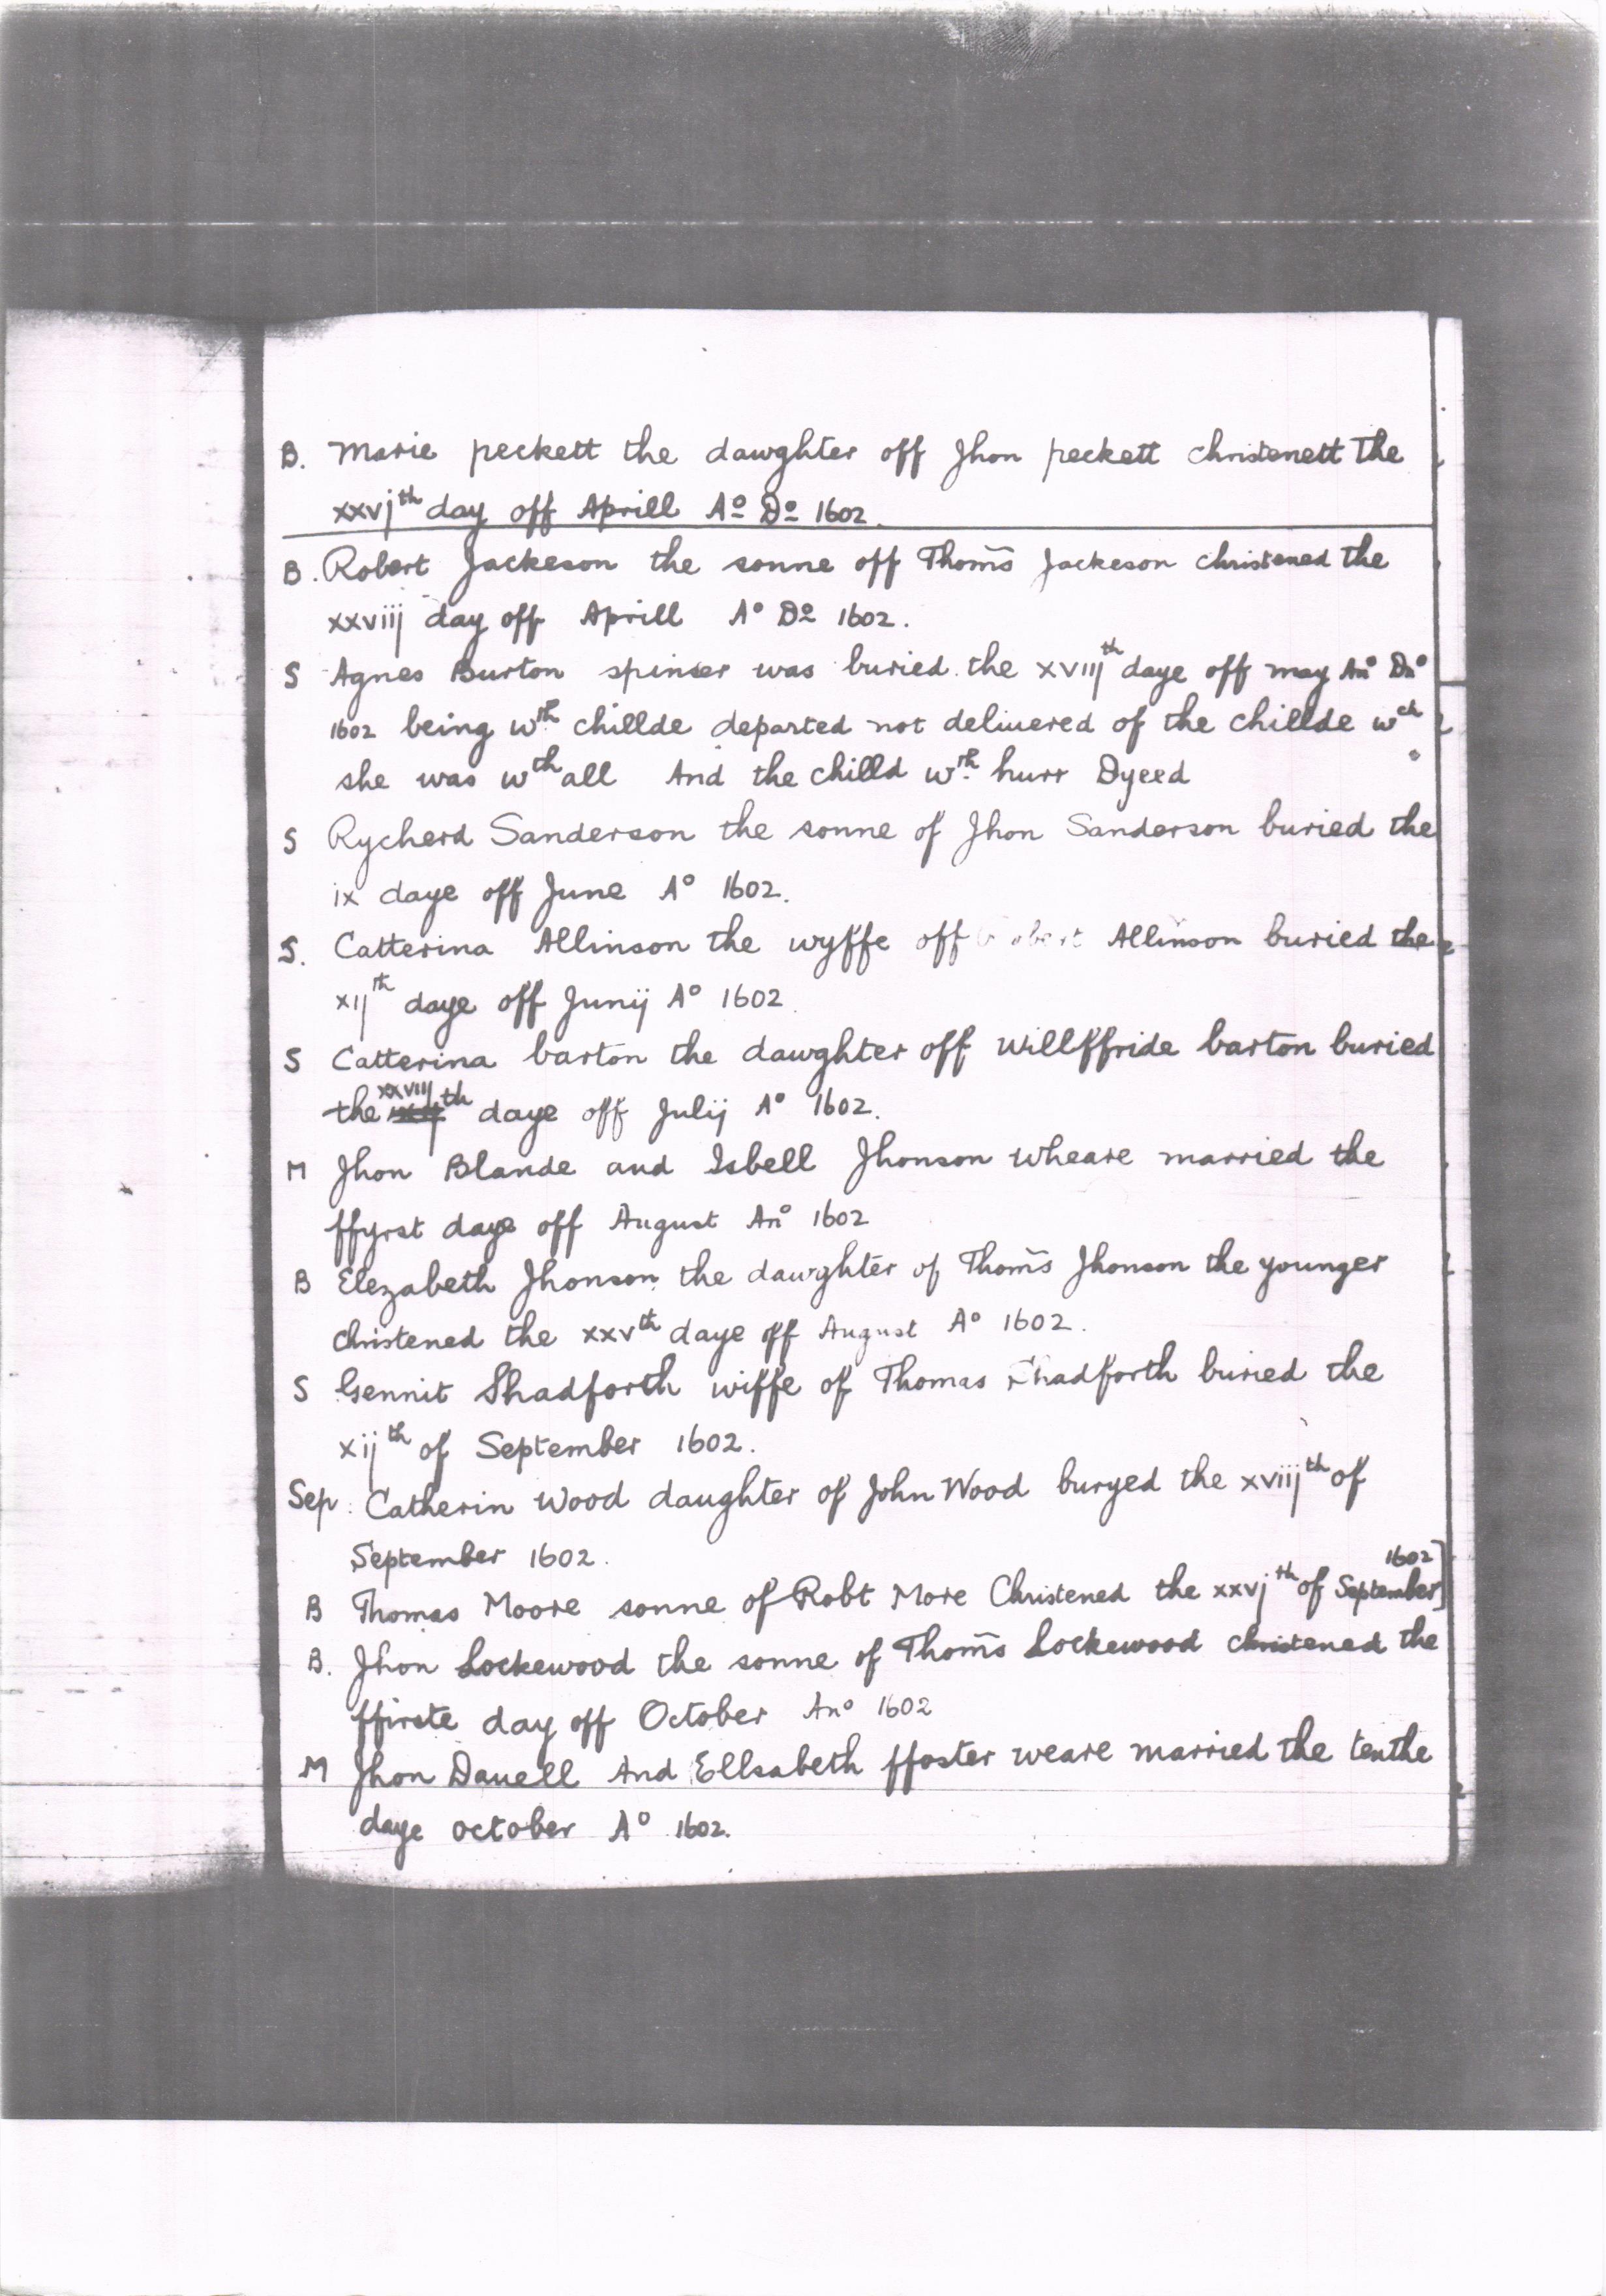 B. Marie peckett the dawghter off Jhon peckett christenett the
xxvjth day off Aprill Ao Do 1602.
B. Robert Jackeson the sonne off Thom̃s Jackeson christened the
xxviij day off Aprill Ao Do 1602.
S Agnes Burton spinser was buried the xviijth daye off may Ano Dno
1602 being wth chillde departed not deliuered of the chillde wch
she was wth all And the chilld wth hurr Dyeed
S Rycherd Sanderson the sonne of Jhon Sanderson buried the
ix daye off June Ao 1602.
S. Catterina Allinson the wyffe off Robert Allinson buried the
xijth daye off Junij Ao 1602
S Catterina barton the dawghter off Willffride barton buried
the xxviijth daye off Julij Ao 1602.
M Jhon Blande and Isbell Jhonson wheare married the
ffyrst daye off August Ano 1602
B Elezabeth Jhonson the dawghter of Thom̃s Jhonson the younger
christened the xxvth daye off August Ao 1602.
S Gennit Shadforth wiffe of Thomas Shadforth buried the
xijth of September 1602.
Sep: Catherin Wood daughter of John Wood buryed the xviijth of
September 1602.
B Thomas Moore sonne of Robt More Christened the xxvjth of September 1602]
B. Jhon Lockewood the sonne of Thom̃s Lockewood christened the
ffirste day off October Ano 1602
M Jhon Dauell And Ellsabeth ffoster weare married the tenthe
daye october Ao 1602.